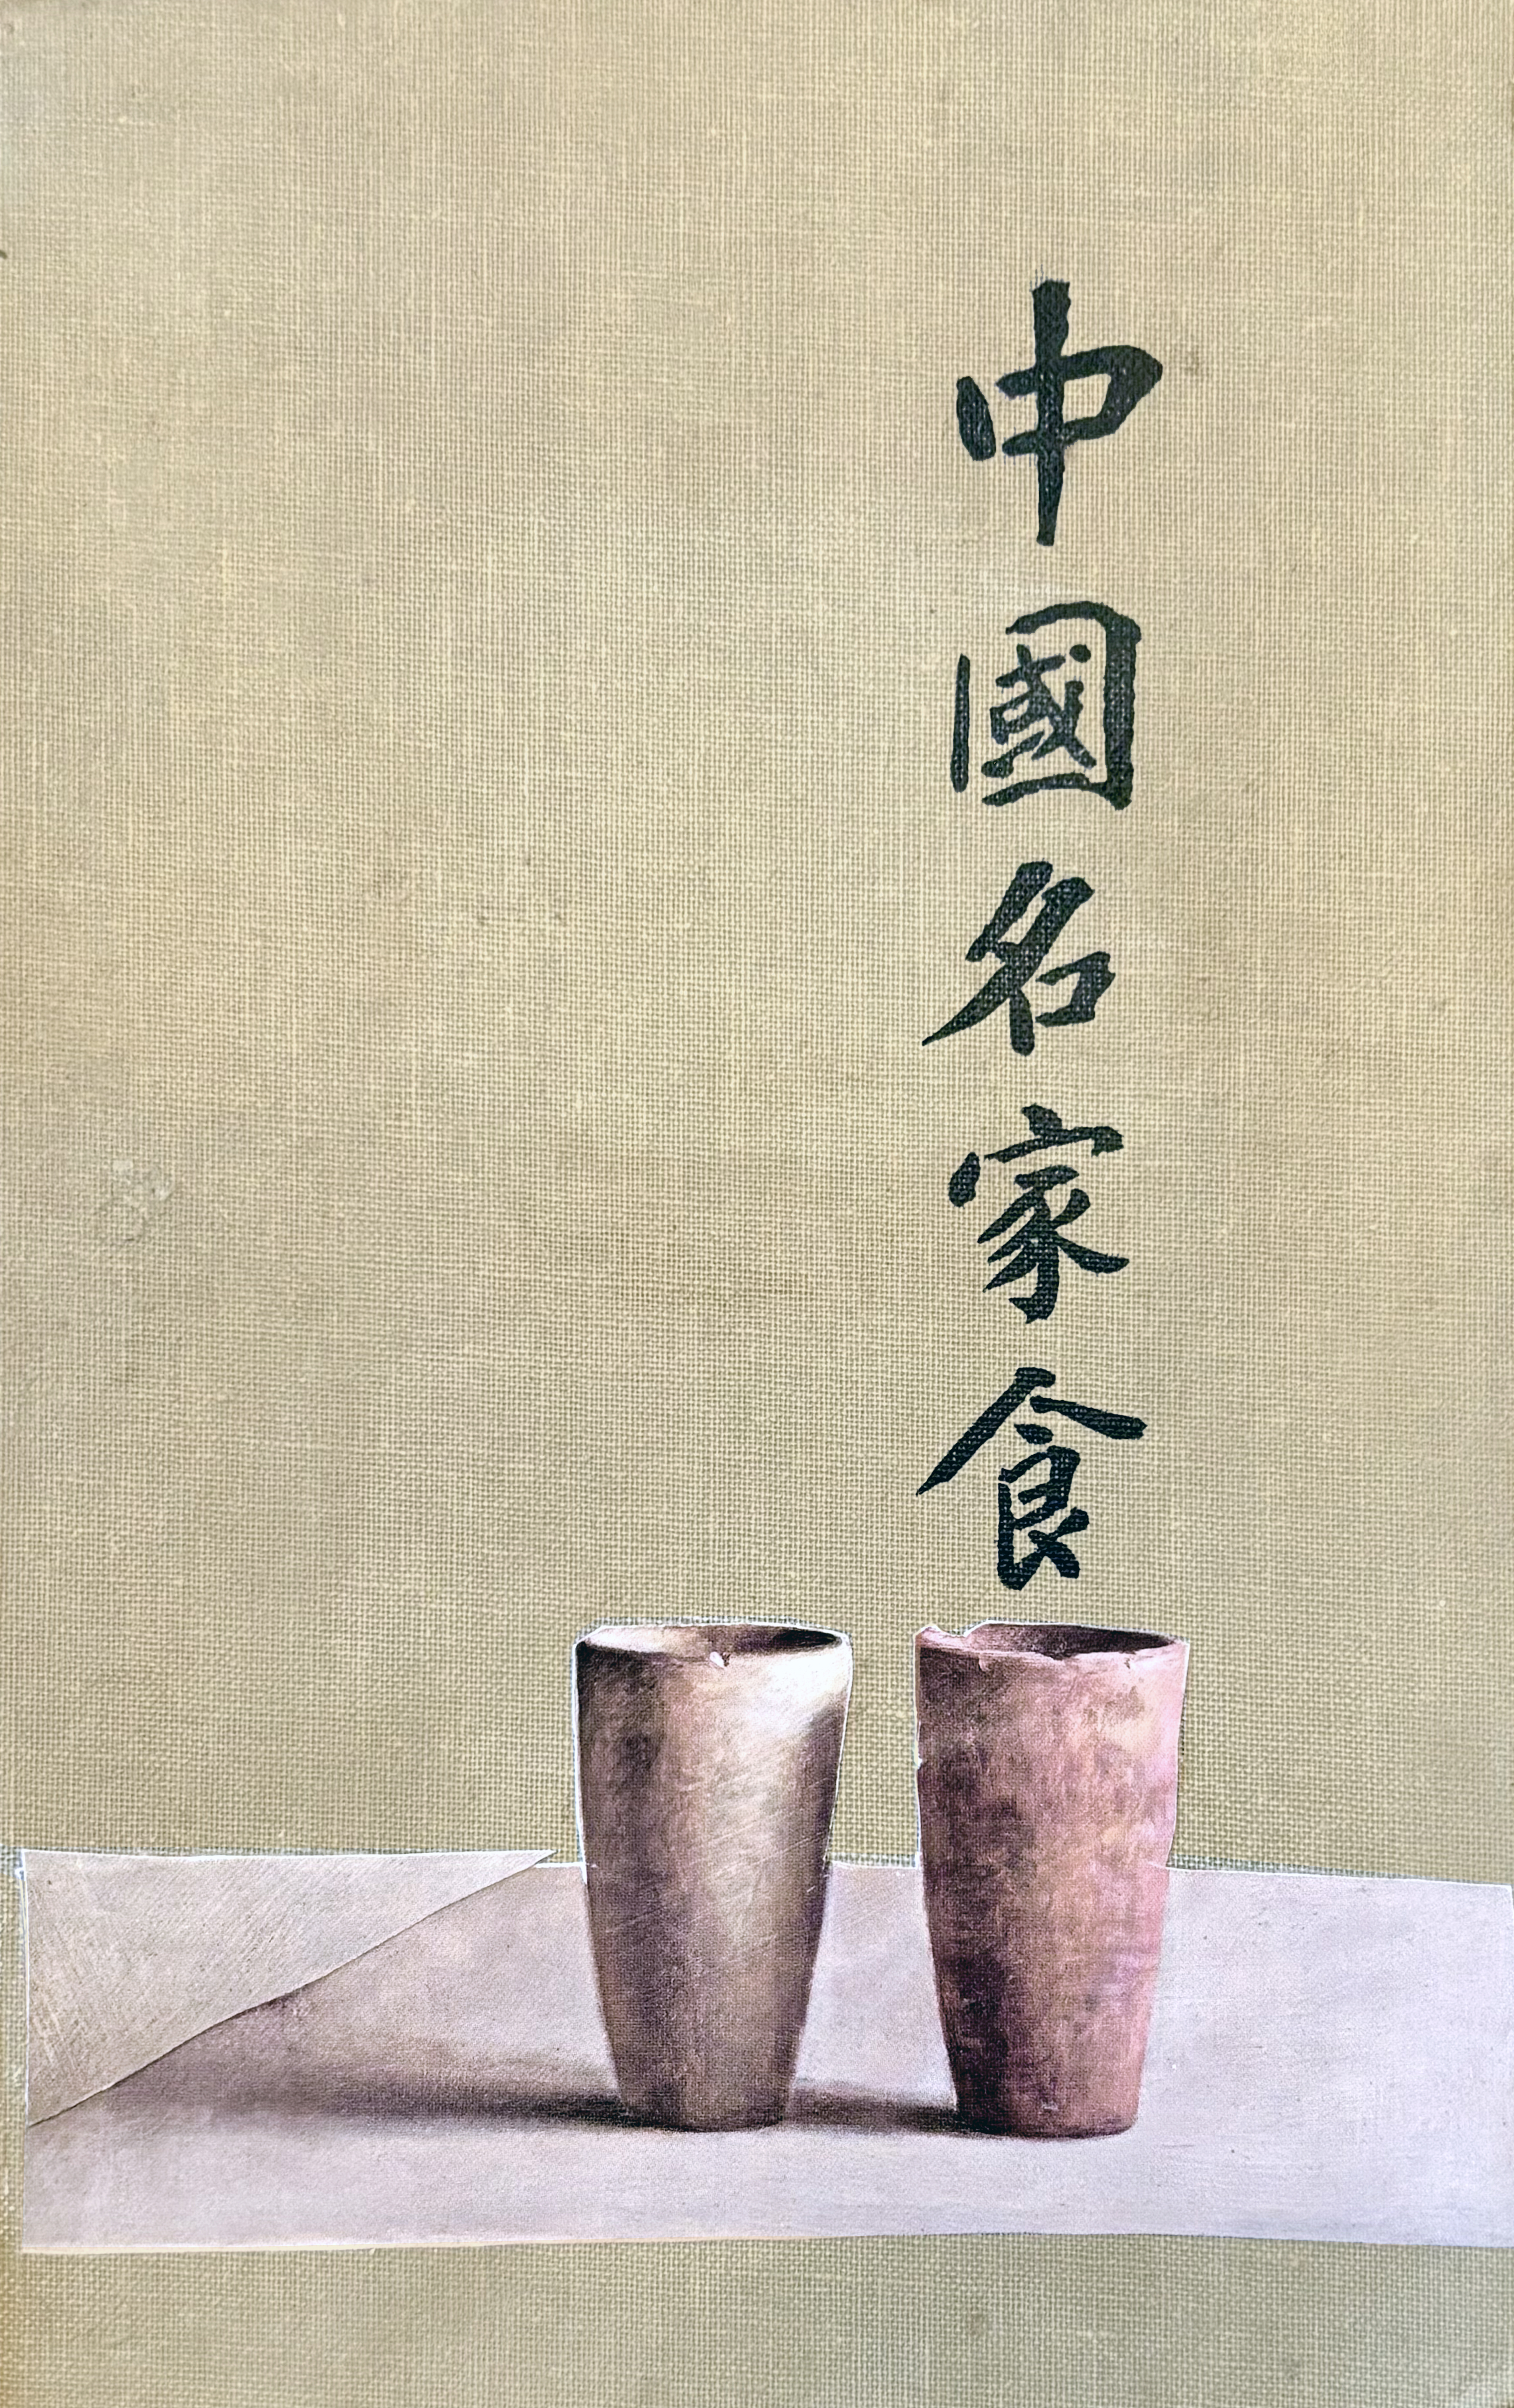 中國名家食